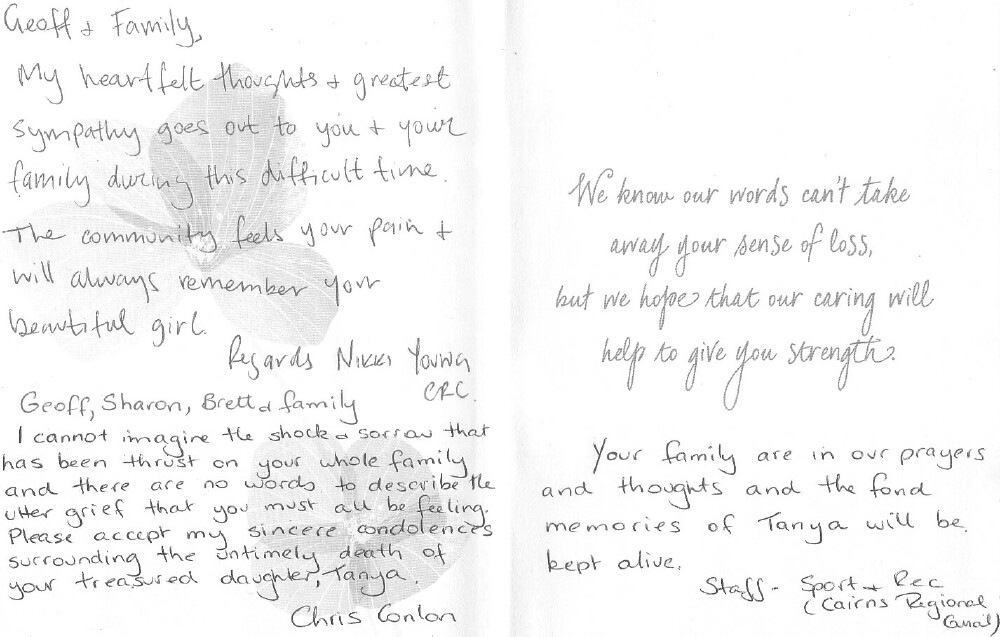 Geoff + Family,
My heartfelt thoughts + greatest
sympathy goes out to you + your
family during this difficult time.
The community feels your pain +
will always remember your
beautiful girl.
Regards Nikki Young
CRC.
Geoff, Sharon, Brett & family
I cannot imagine the shock & sorrow that
has been thrust on your whole family
and there are no words to describe the
utter grief that you must all be feeling.
Please accept my sincere condolences
surrounding the untimely death of
your treasured daughter, Tanya.
Chris Conlon
We know our words can't take
away your sense of loss,
but we hope that our caring will
help to give you strength.
Your family are in our prayers
and thoughts and the fond
memories of Tanya will be
kept alive.
Staff - Sport + Rec
(Cairns Regional